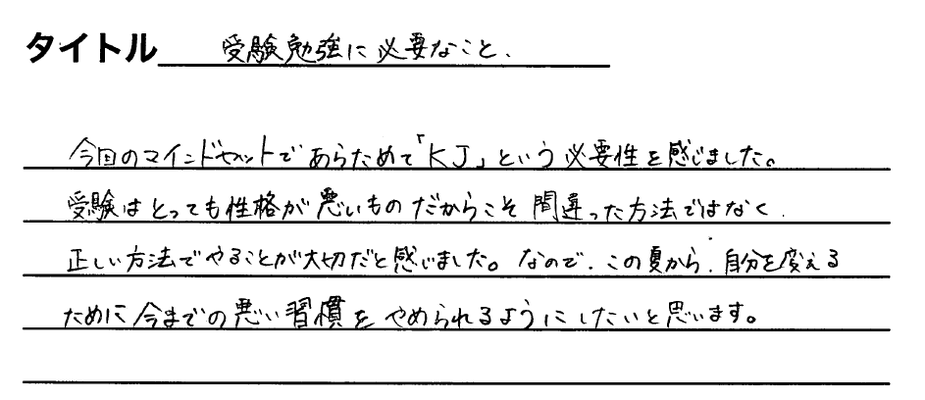 タイトル 受験勉強に必要なこと、
今回のマインドセットであらためて「KJ」という必要性を感じました。
受験はとっても性格が悪いものだからこそ間違った方法ではなく、
正しい方法でやることが大切だと感じました。なので、この夏から、自分を変える
ために今までの悪い習慣をやめられるようにしたいと思います。